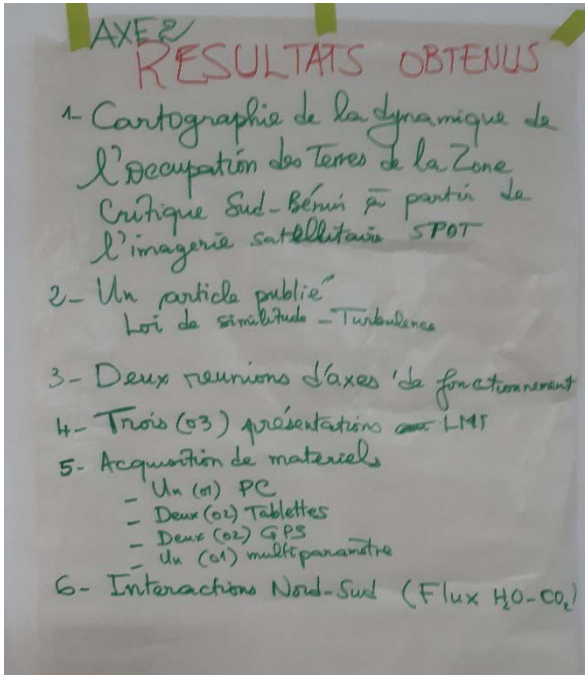 AXE 2
RESULTATS OBTENUS
1- Cartographie de la dynamique de
l'Occupation des Terres de la Zone
Critique Sud-Bénin à partir de
l'imagerie satellitaire SPOT
2- Un article publié
Loi de similitude - Turbulence
3- Deux reunions d'axes de fonctionnement
4- Trois (03) présentations LMI
5- Acquisition de materiels
- Un (01) PC
- Deux (02) Tablettes
- Deux (02) GPS
- Un (01) multiparamètre
6- Interactions Nord-Sud (Flux H₂O-CO₂)